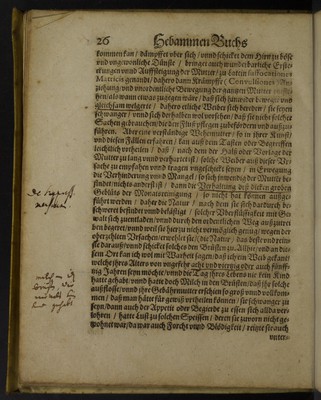 26 Hebammen Buchs
kommen kan / dämpffet vber sich / vnnd schicket dem Hertzen böse
vnd vngewonliche Dünste / bringet auch wunderbarliche Ersti-
ckungen vnnd Auffsteigung der Mutter / zu Latein suffocationes
Matricis genandt / dahero dann Krämpffe / Convulsiones
ziehung vnd vnordenliche Bewegung der gantzen Mutter
hen als wann etwas zu tragen wäre / daß sich hin vnd wider bewege vnd
gleichsam welgerte / dahero etliche Weiber sich bereden / sie seyen
schwanger / vnnd sich derhalben wol vorsehen / daß sie nicht solche
Sachen gebrauchen / die den Fluß pflegen zubefördern vnd außzu
führen. Aber eine verständige Wehemutter / so in ihrer Kunst
vnd diesen Fällen erfahren / kan auß dem Tasten oder Begreiffen
leichtlich vrtheilen / daß / nach dem der Halß oder Vorlage der
Mutter zu lang vnnd verhärtet ist / solche Weiber auß dieser Vr-
sache zu empfahen vnnd tragen vngeschickt seyen / in Erwegung
die Verhinderung vnnd Mangel / so sich inwendig der Mutter be-
findet nichts anders ist / dann die Verhaltung deß dicken groben
Geblüts der Monatreinigung / so nicht hat können außge
führt werden / daher die Natur / nach dem sie sich dardurch be-
schweret befindet vnnd belästiget / solcher Vberflüssigkeit mit Ge-
walt sich zuentladen / vnnd durch den ordentlichen Weg außzufüh-
ren begeret / vnnd weil sie hierzu nicht vermöglich gering / wegen der
oberzehlten Vrsachen / erwehlet sie / die Natur / das beste vnd treibt
sie darauß / vnnd schicket solches den Brüsten zu. Allhie / vnd an die-
sem Ort kan ich wol mit Warheit sagen / daß ich ein Weib gekandt
welche ihres Alters von vngefehr acht vnd viertzig oder auch fünff-
tzig Jahren seyn möchte / vnnd die Tag ihres Lebens nie kein Kind
hatte gehabt / vnnd hatte doch Milch in den Brüsten / daß ihr solche
außflosse / vnnd ihre Gebährmutter erschien so groß vnd vollkom-
men / daß man hätte für gewiß vrtheilen können / sie schwanger zu
seyn / dann auch der Appetit oder Begierde zu essen sich allda ver-
lohren / hatte Lust zu solchen Speissen / deren sie zuvorn nicht ge-
wohnet war / da war auch Forcht vnnd Blödigkeit / reitzte sie auch
vnter-